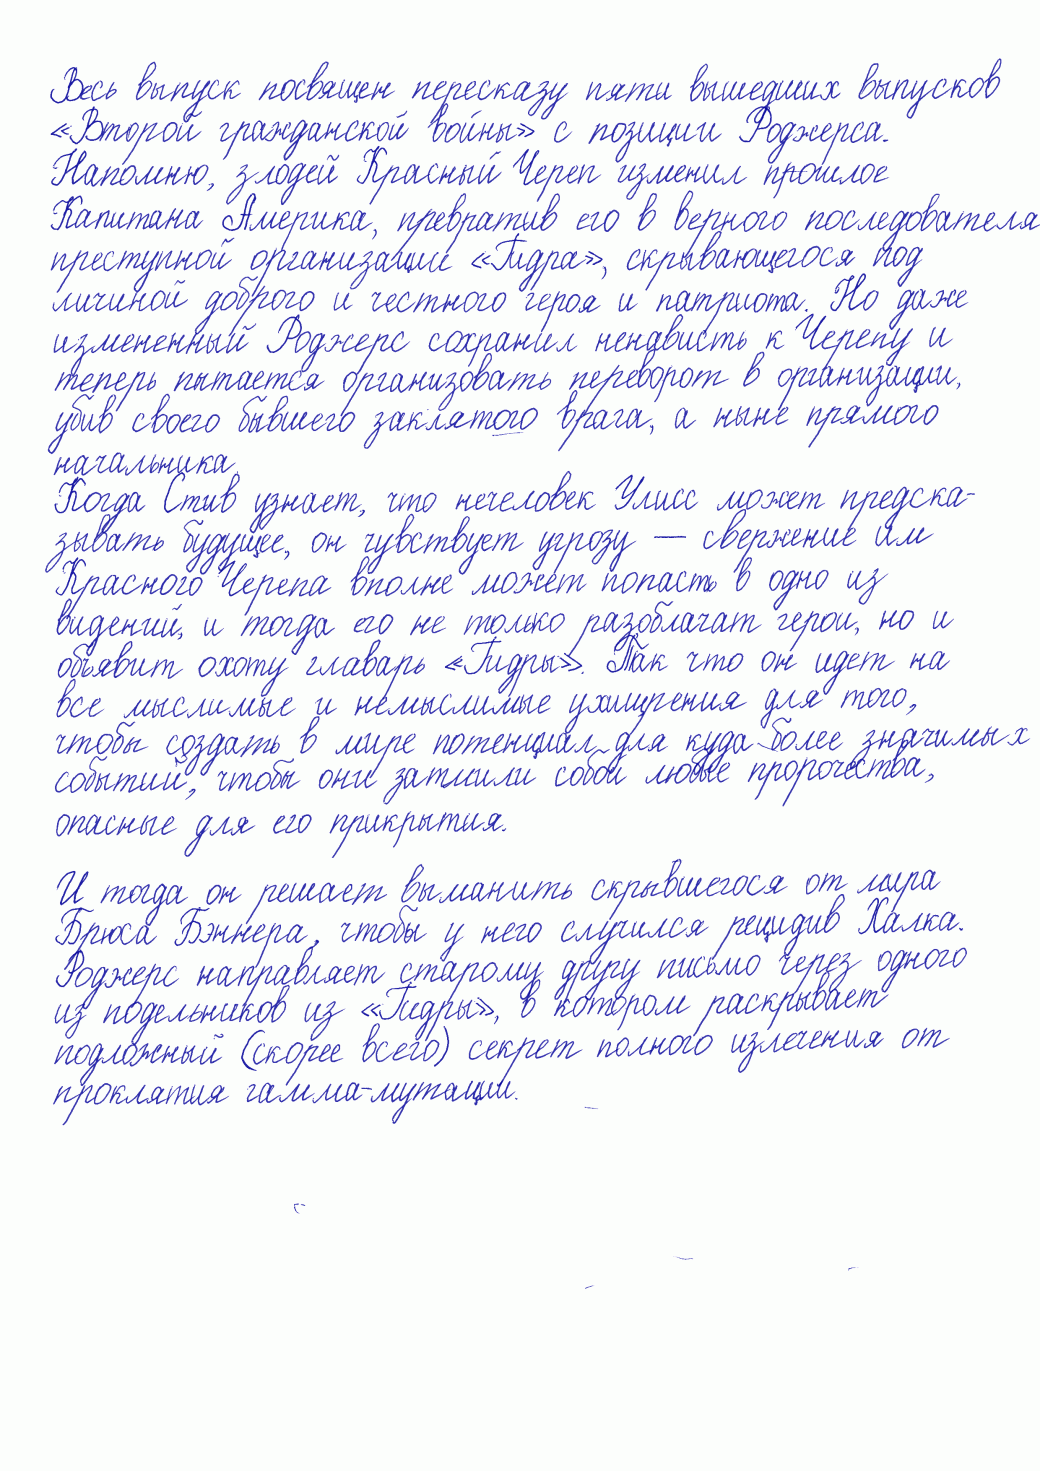 Весь выпуск посвящен пересказу пяти вышедших выпусков
«Второй гражданской войны» с позиции Роджерса.
Напомню, злодей Красный Череп изменил прошлое
Капитана Америка, превратив его в верного последователя
преступной организации «Гидра», скрывающегося под
личиной доброго и честного героя и патриота. Но даже
измененный Роджерс сохранил ненависть к Черепу и
теперь пытается организовать переворот в организации,
убив своего бывшего заклятого врага, а ныне прямого
начальника.
Когда Стив узнает, что нечеловек Улисс может предска-
зывать будущее, он чувствует угрозу — свержение им
Красного Черепа вполне может попасть в одно из
видений, и тогда его не только разоблачат герои, но и
объявит охоту главарь «Гидры». Так что он идет на
все мыслимые и немыслимые ухищрения для того,
чтобы создать в мире потенциал для куда более значимых
событий, чтобы они затмили собой любые пророчества,
опасные для его прикрытия.
И тогда он решает выманить скрывшегося от мира
Брюса Бэннера, чтобы у него случился рецидив Халка.
Роджерс направляет старому другу письмо через одного
из подельников из «Гидры», в котором раскрывает
подложный (скорее всего) секрет полного излечения от
проклятия гамма-мутации.